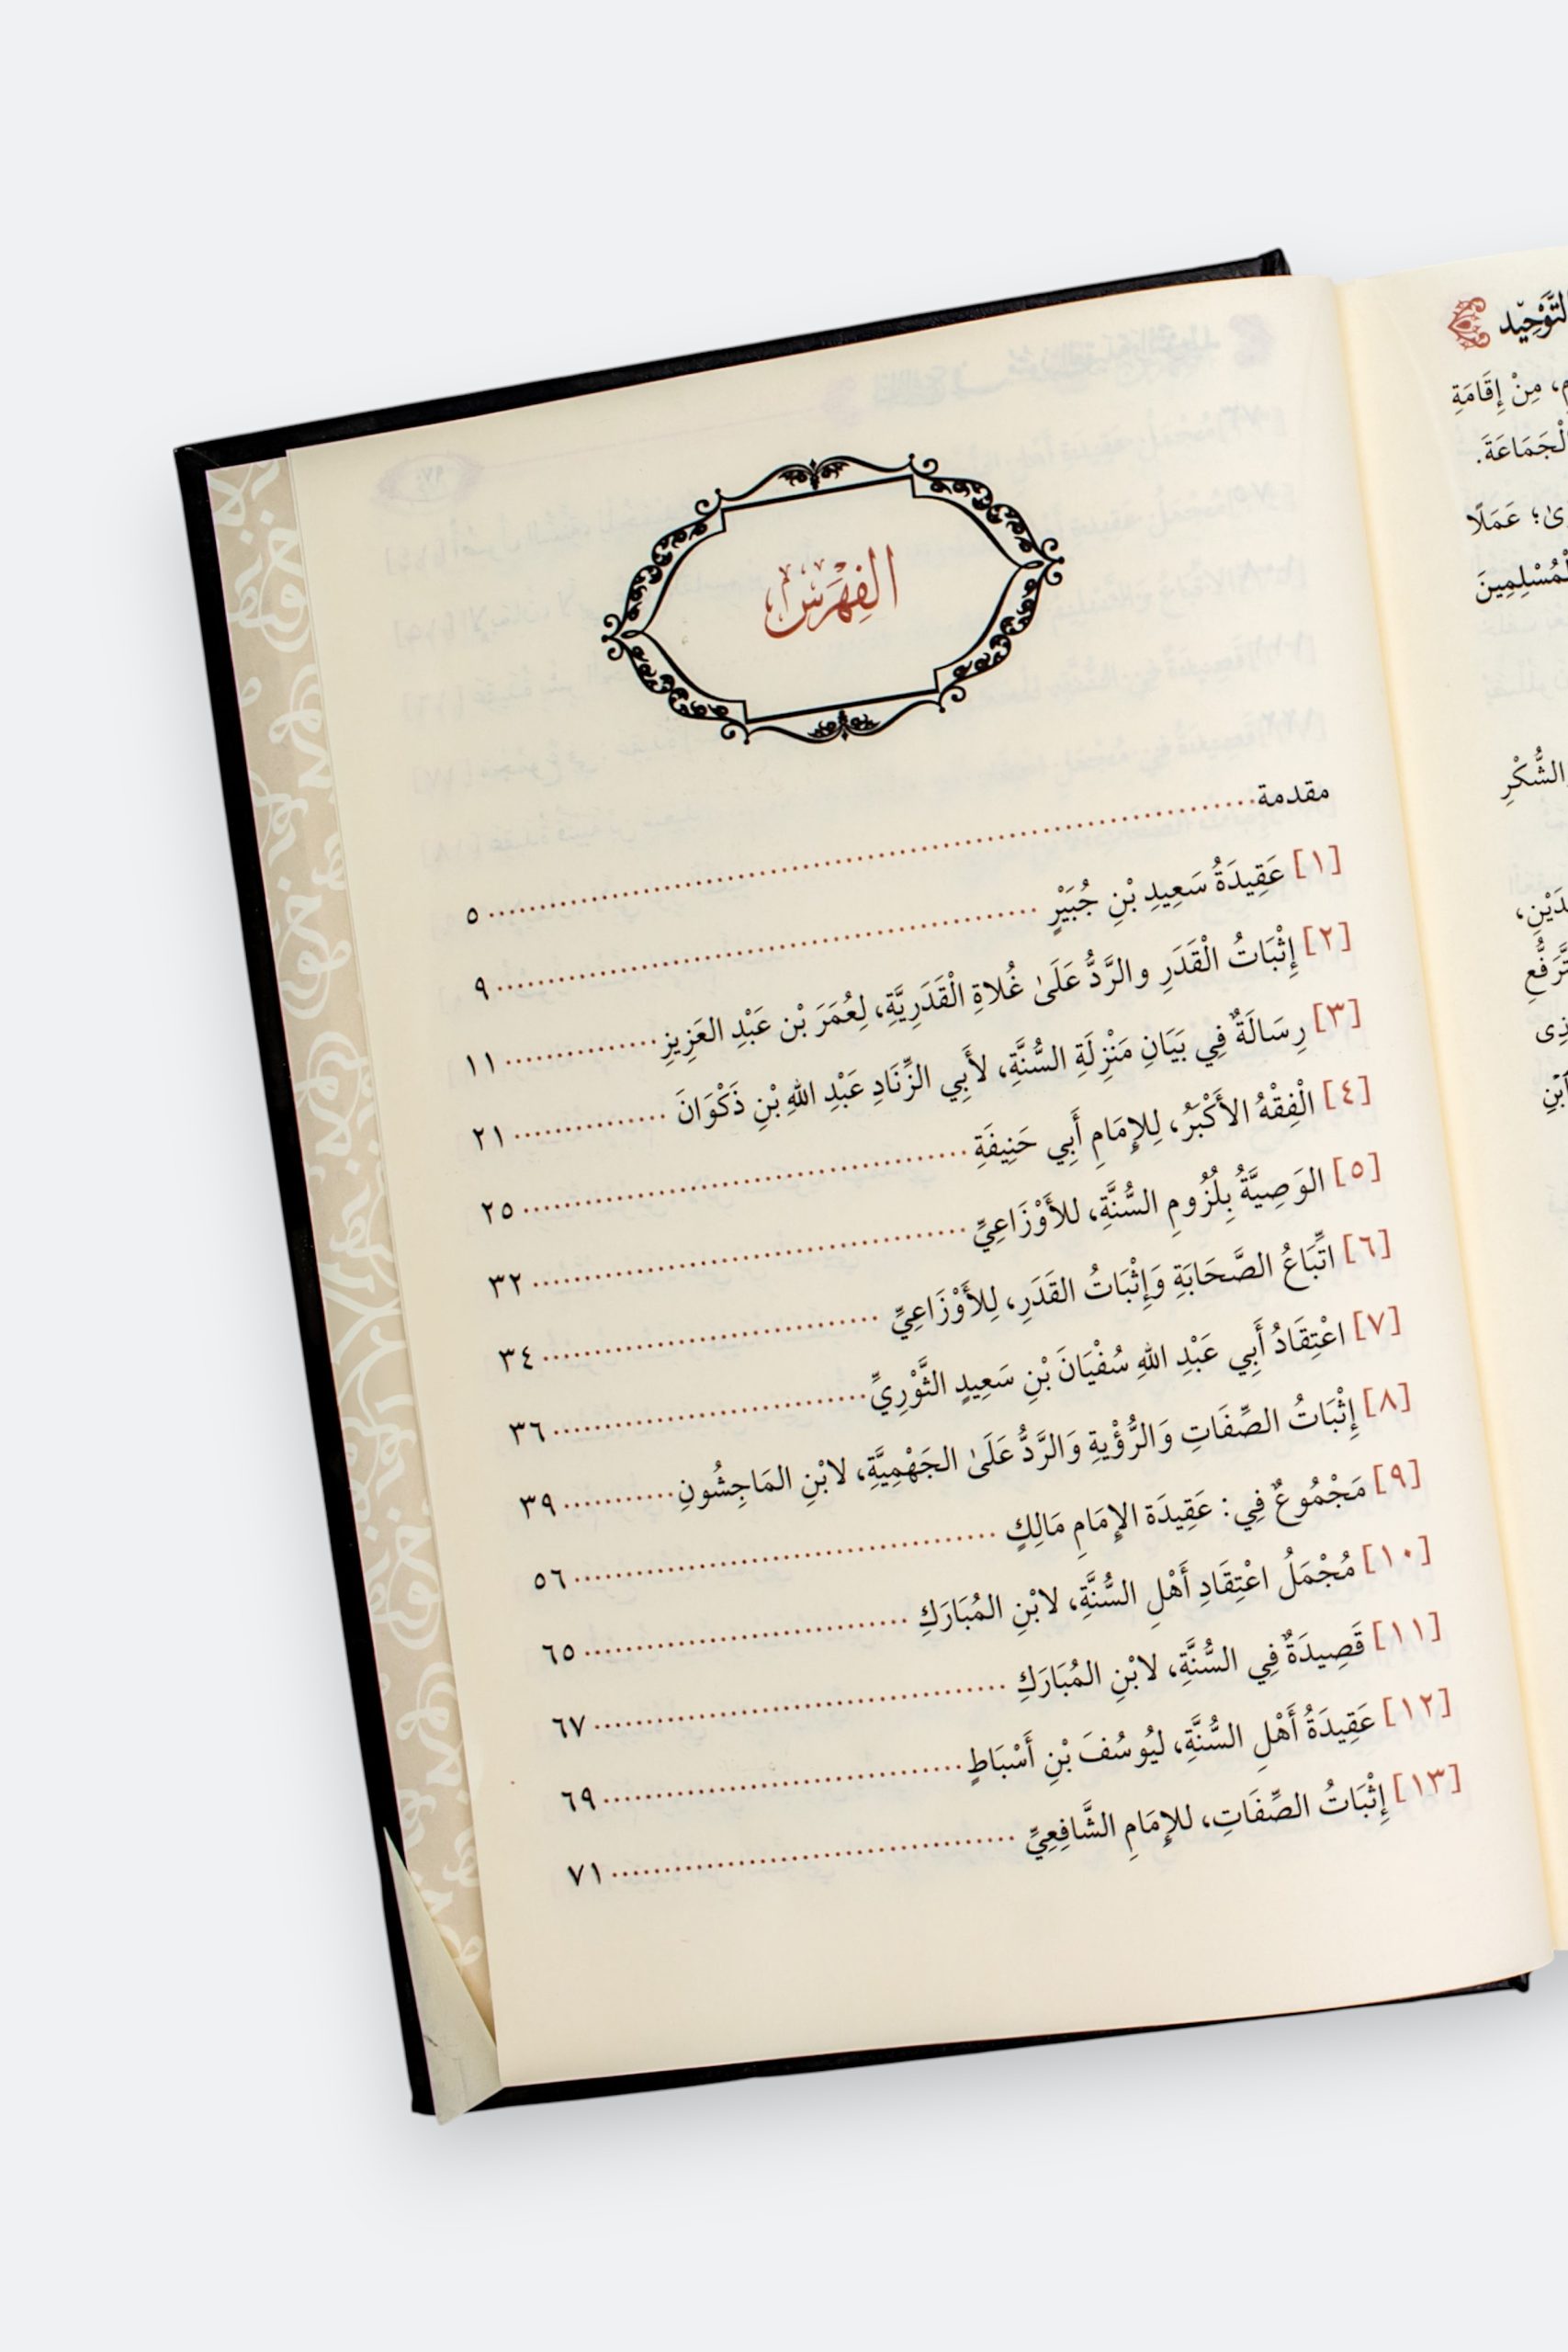 الفِهْرَسُ
مقدمة ٥
[١] عَقِيدَةُ سَعِيدِ بْنِ جُبَيْرٍ ٩
[٢] إِثْبَاتُ الْقَدَرِ والرَّدُّ عَلَىٰ غُلاةِ الْقَدَرِيَّةِ، لِعُمَرَ بْن عَبْدِ العَزِيزِ ١١
[٣] رِسَالَةٌ فِي بَيَانِ مَنْزِلَةِ السُّنَّةِ، لأَبِي الزِّنَادِ عَبْدِ اللهِ بْنِ ذَكْوَانَ ٢١
[٤] الْفِقْهُ الأَكْبَرُ، لِلإِمَامِ أَبِي حَنِيفَةِ ٢٥
[٥] الوَصِيَّةُ بِلُزُومِ السُّنَّةِ، للأَوْزَاعِيِّ ٣٢
[٦] اتِّبَاعُ الصَّحَابَةِ وَإِثْبَاتُ القَدَرِ، لِلأَوْزَاعِيِّ ٣٤
[٧] اعْتِقَادُ أَبِي عَبْدِ اللهِ سُفْيَانَ بْنِ سَعِيدٍ الثَّوْرِيِّ ٣٦
[٨] إِثْبَاتُ الصِّفَاتِ وَالرُّؤْيةِ وَالرَّدُّ عَلَىٰ الجَهْمِيَّةِ، لابْنِ المَاجِشُونِ ٣٩
[٩] مَجْمُوعٌ فِي: عَقِيدَة الإِمَامِ مَالِكٍ ٥٦
[١٠] مُجْمَلُ اعْتِقَادِ أَهْلِ السُّنَّةِ، لابْنِ المُبَارَكِ ٦٥
[١١] قَصِيدَةٌ فِي السُّنَّةِ، لابْنِ المُبَارَكِ ٦٧
[١٢] عَقِيدَةُ أَهْلِ السُّنَّةِ، ليُوسُفَ بْنِ أَسْبَاطٍ ٦٩
[١٣] إِثْبَاتُ الصِّفَاتِ، للإِمَامِ الشَّافِعِيِّ ٧١
التَّوْحِيْد
مِنْ إِقَامَةِ
الْجَمَاعَةَ.
عَمَلًا
الْمُسْلِمِينَ
الشُّكْرِ